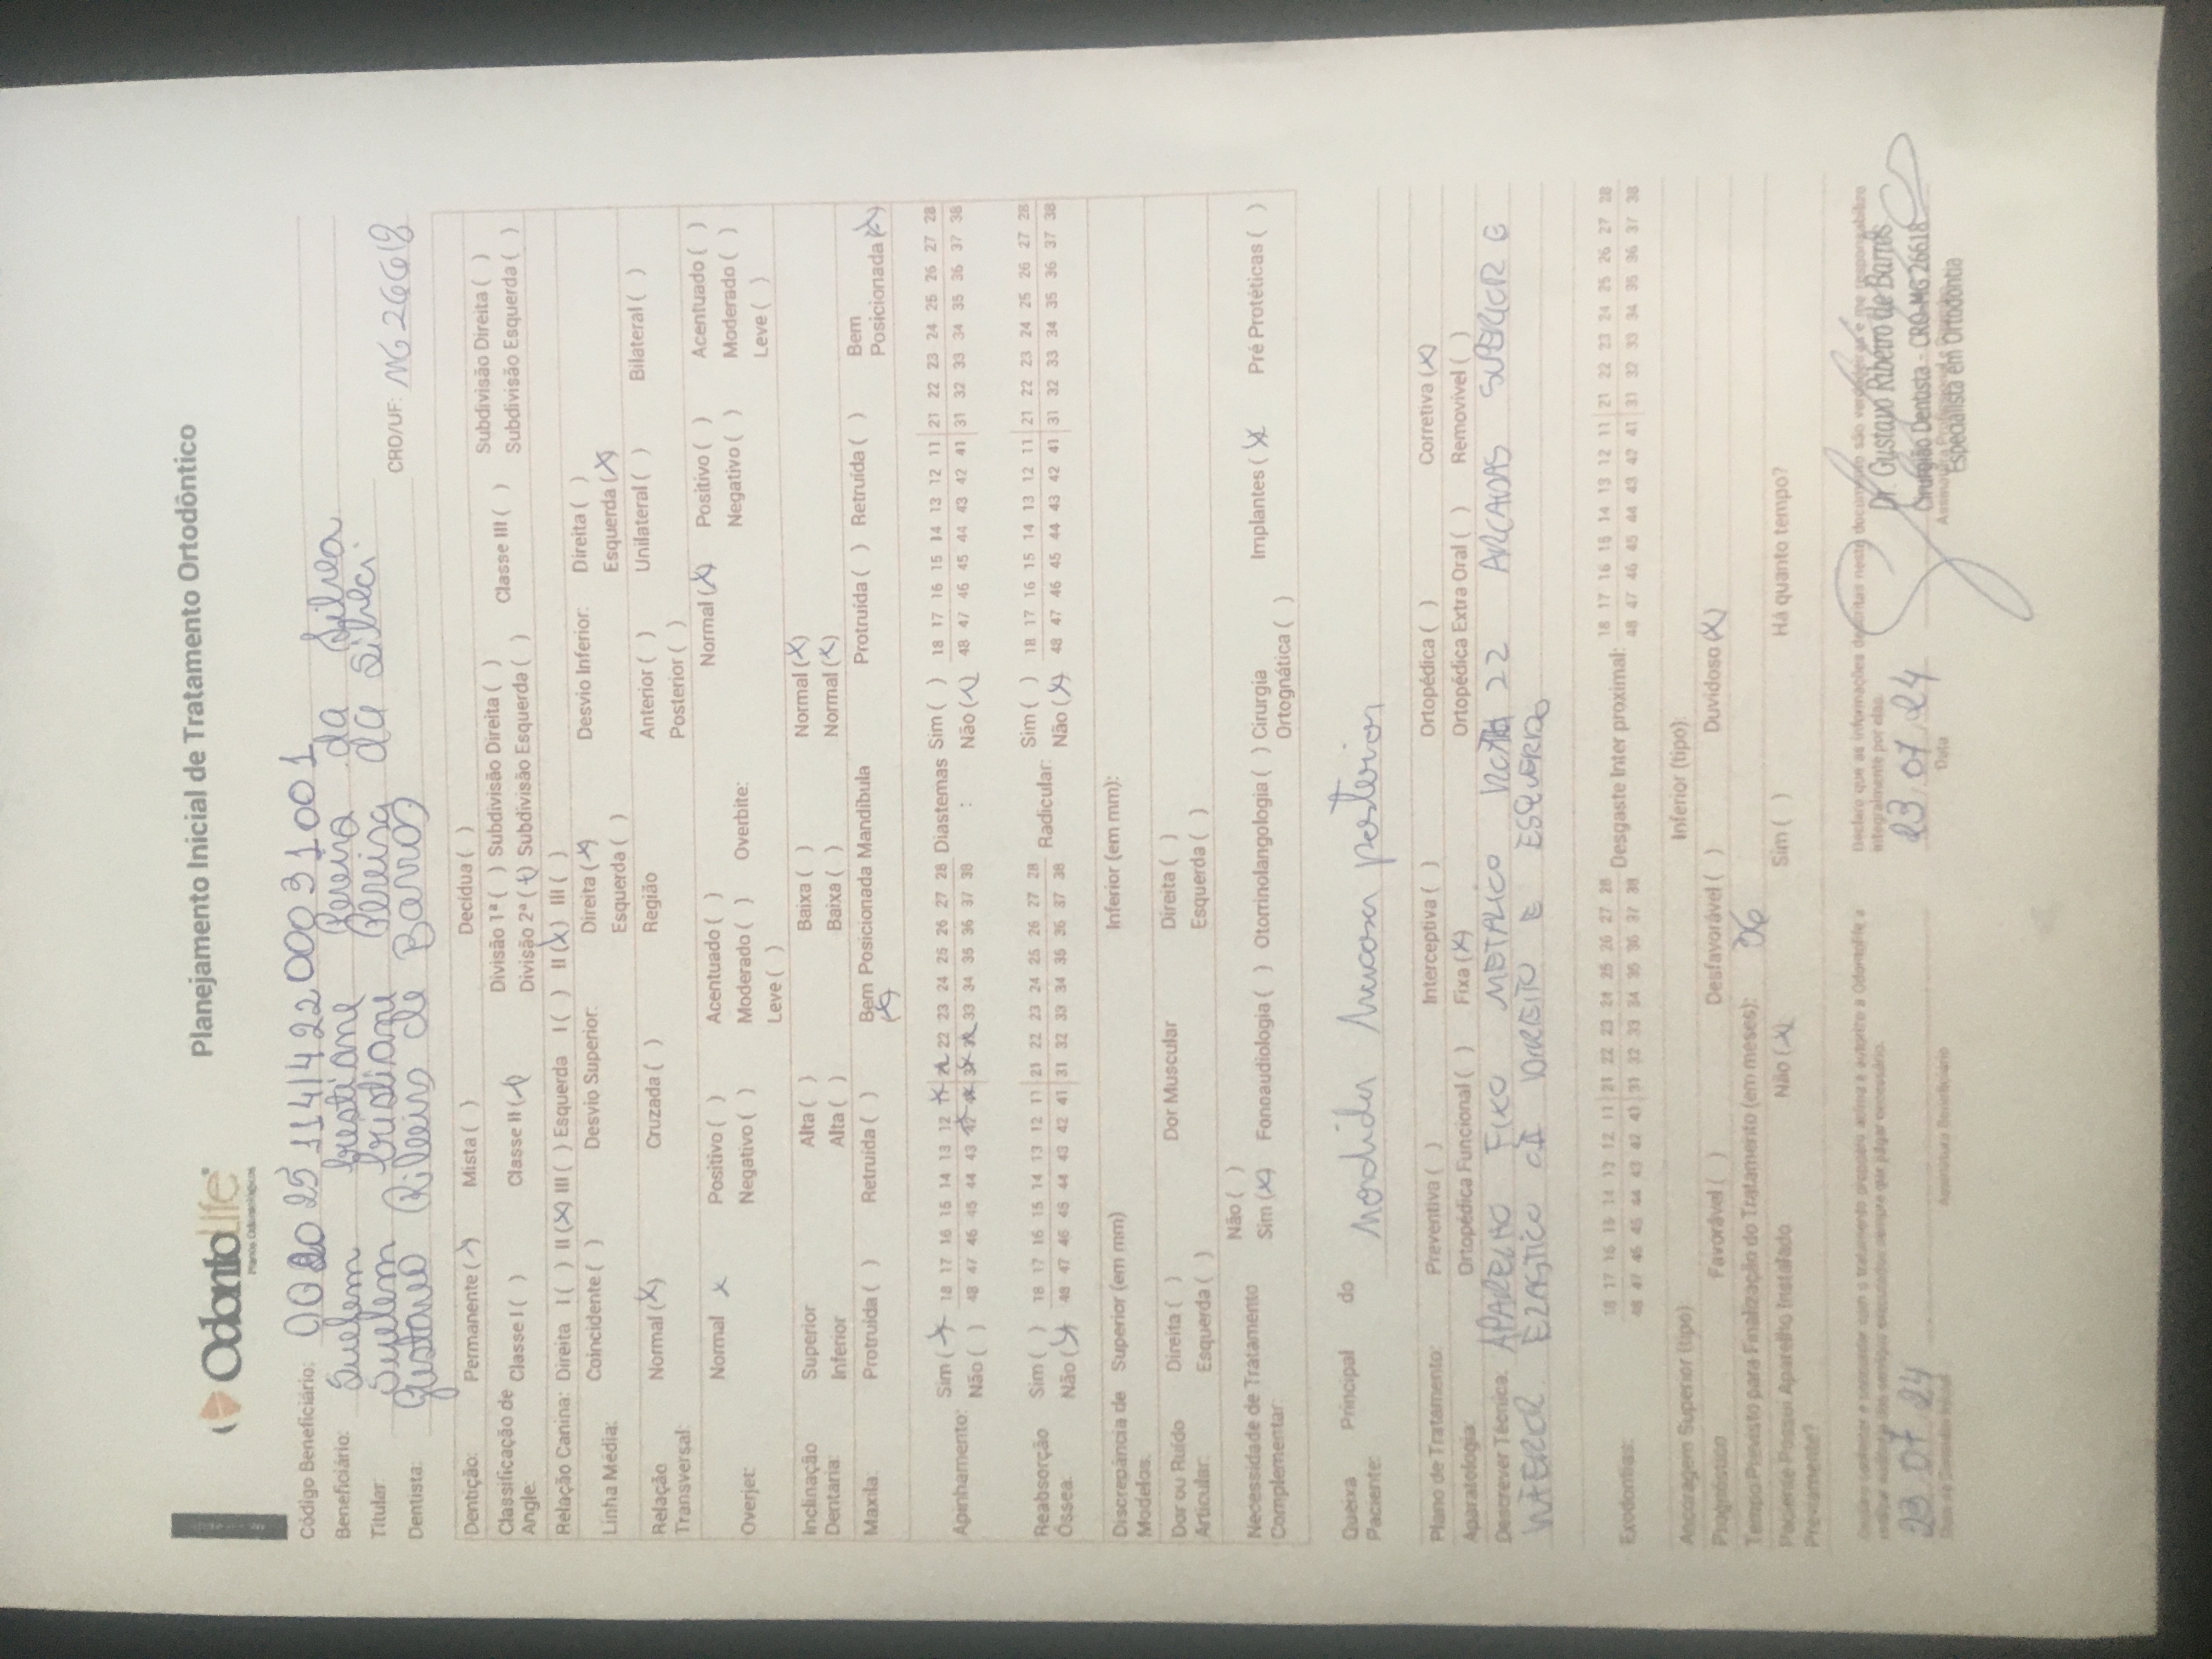 OdontoLife
Planos Odontológicos
Planejamento Inicial de Tratamento Ortodôntico
Código Beneficiário: 002025 114142200031001
Beneficiário: Suelem Cristiane Pereira da Silva
Titular: Suelem Cristiane Pereira da Silva
Dentista: Gustavo Ribeiro de Barros CRO/UF: MG 26618
Dentição: Permanente (x) Mista ( ) Decídua ( )
Classificação de Angle: Classe I ( ) Classe II (x) Divisão 1ª ( ) Subdivisão Direita ( ) Classe III ( ) Subdivisão Direita ( )
Divisão 2ª (x) Subdivisão Esquerda ( ) Subdivisão Esquerda ( )
Relação Canina: Direita I ( ) II (x) III ( ) Esquerda I ( ) II (x) III ( )
Linha Média: Coincidente ( ) Desvio Superior: Direita (x) Desvio Inferior: Direita ( )
Esquerda ( ) Esquerda (x)
Relação Transversal: Normal (x) Cruzada ( ) Região Anterior ( ) Unilateral ( ) Bilateral ( )
Posterior ( )
Overjet: Normal x Positivo ( ) Acentuado ( ) Overbite: Normal (x) Positivo ( ) Acentuado ( )
Negativo ( ) Moderado ( ) Negativo ( ) Moderado ( )
Leve ( ) Leve ( )
Inclinação Dentária: Superior Alta ( ) Baixa ( ) Normal (x)
Inferior Alta ( ) Baixa ( ) Normal (x)
Maxila: Protruída ( ) Retruída ( ) Bem Posicionada (x) Mandíbula Protruída ( ) Retruída ( ) Bem Posicionada (x)
Apinhamento: Sim (x) 18 17 16 15 14 13 12 x x 22 23 24 25 26 27 28 Diastemas : Sim ( ) 18 17 16 15 14 13 12 11 21 22 23 24 25 26 27 28
Não ( ) 48 47 46 45 44 43 x x x x 33 34 35 36 37 38 Não (x) 48 47 46 45 44 43 42 41 31 32 33 34 35 36 37 38
Reabsorção Óssea: Sim ( ) 18 17 16 15 14 13 12 11 21 22 23 24 25 26 27 28 Radicular: Sim ( ) 18 17 16 15 14 13 12 11 21 22 23 24 25 26 27 28
Não (x) 48 47 46 45 44 43 42 41 31 32 33 34 35 36 37 38 Não (x) 48 47 46 45 44 43 42 41 31 32 33 34 35 36 37 38
Discrepância de Modelos: Superior (em mm) Inferior (em mm):
Dor ou Ruído Articular: Direita ( ) Dor Muscular Direita ( )
Esquerda ( ) Esquerda ( )
Necessidade de Tratamento Complementar: Não ( )
Sim (x) Fonoaudiologia ( ) Otorrinolangologia ( ) Cirurgia Ortognática ( ) Implantes (x Pré Protéticas ( )
Queixa Principal do Paciente: Mordida mucosa posterior
Plano de Tratamento: Preventiva ( ) Interceptiva ( ) Ortopédica ( ) Corretiva (x)
Aparatologia: Ortopédica Funcional ( ) Fixa (x) Ortopédica Extra Oral ( ) Removível ( )
Descrever Técnica: APARELHO FIXO METALICO 22 ARCADAS SUPERIOR E
INFERIOR. ELASTICO DIREITO E ESQUERDO
Exodontias: 18 17 16 15 14 13 12 11 21 22 23 24 25 26 27 28 Desgaste Inter proximal: 18 17 16 15 14 13 12 11 21 22 23 24 25 26 27 28
48 47 46 45 44 43 42 41 31 32 33 34 35 36 37 38 48 47 46 45 44 43 42 41 31 32 33 34 35 36 37 38
Ancoragem Superior (tipo): Inferior (tipo)
Prognóstico Favorável ( ) Desfavorável ( ) Duvidoso (x)
Tempo Previsto para Finalização do Tratamento (em meses): 36
Paciente Possui Aparelho Instalado Previamente? Não (x Sim ( ) Há quanto tempo?
Declaro que as informações descritas neste documento são verdadeiras e me responsabilizo
integralmente por elas.
23 07 24
23.07.24
Data
Assinatura Beneficiário
Dr. Gustavo Ribeiro de Barros
Cirurgião Dentista - CRO-MG 26618
Especialista em Ortodontia